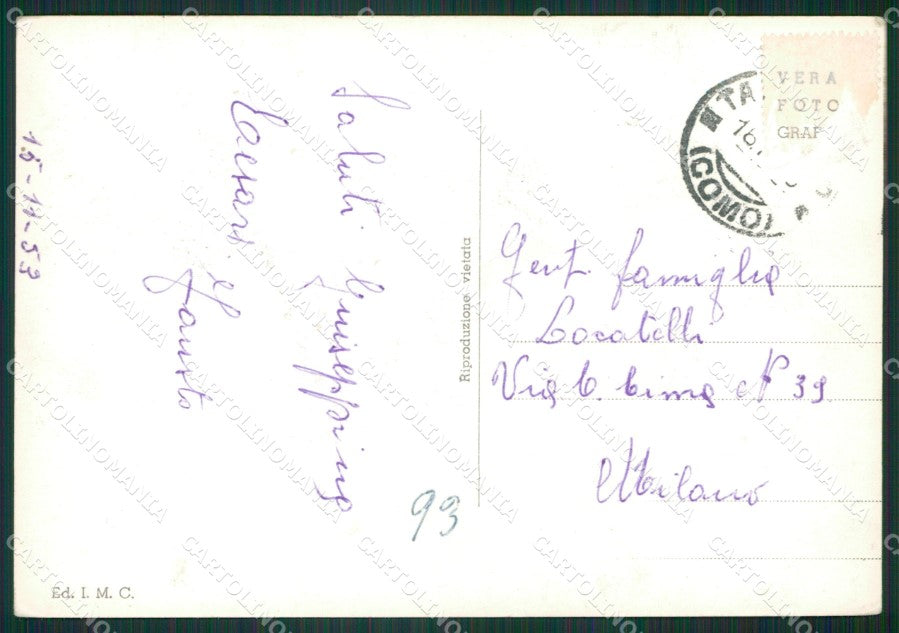 15-11-53
Saluti Giuseppina
Cesari
Fausto
Riproduzione vietata
VERA
FOTO
GRAF
TA
16
(COMO)
Gent. famiglia
Locatelli
Via C. Cima N° 39
Milano
93
Ed. I. M. C.
CARTOLINOMANIA